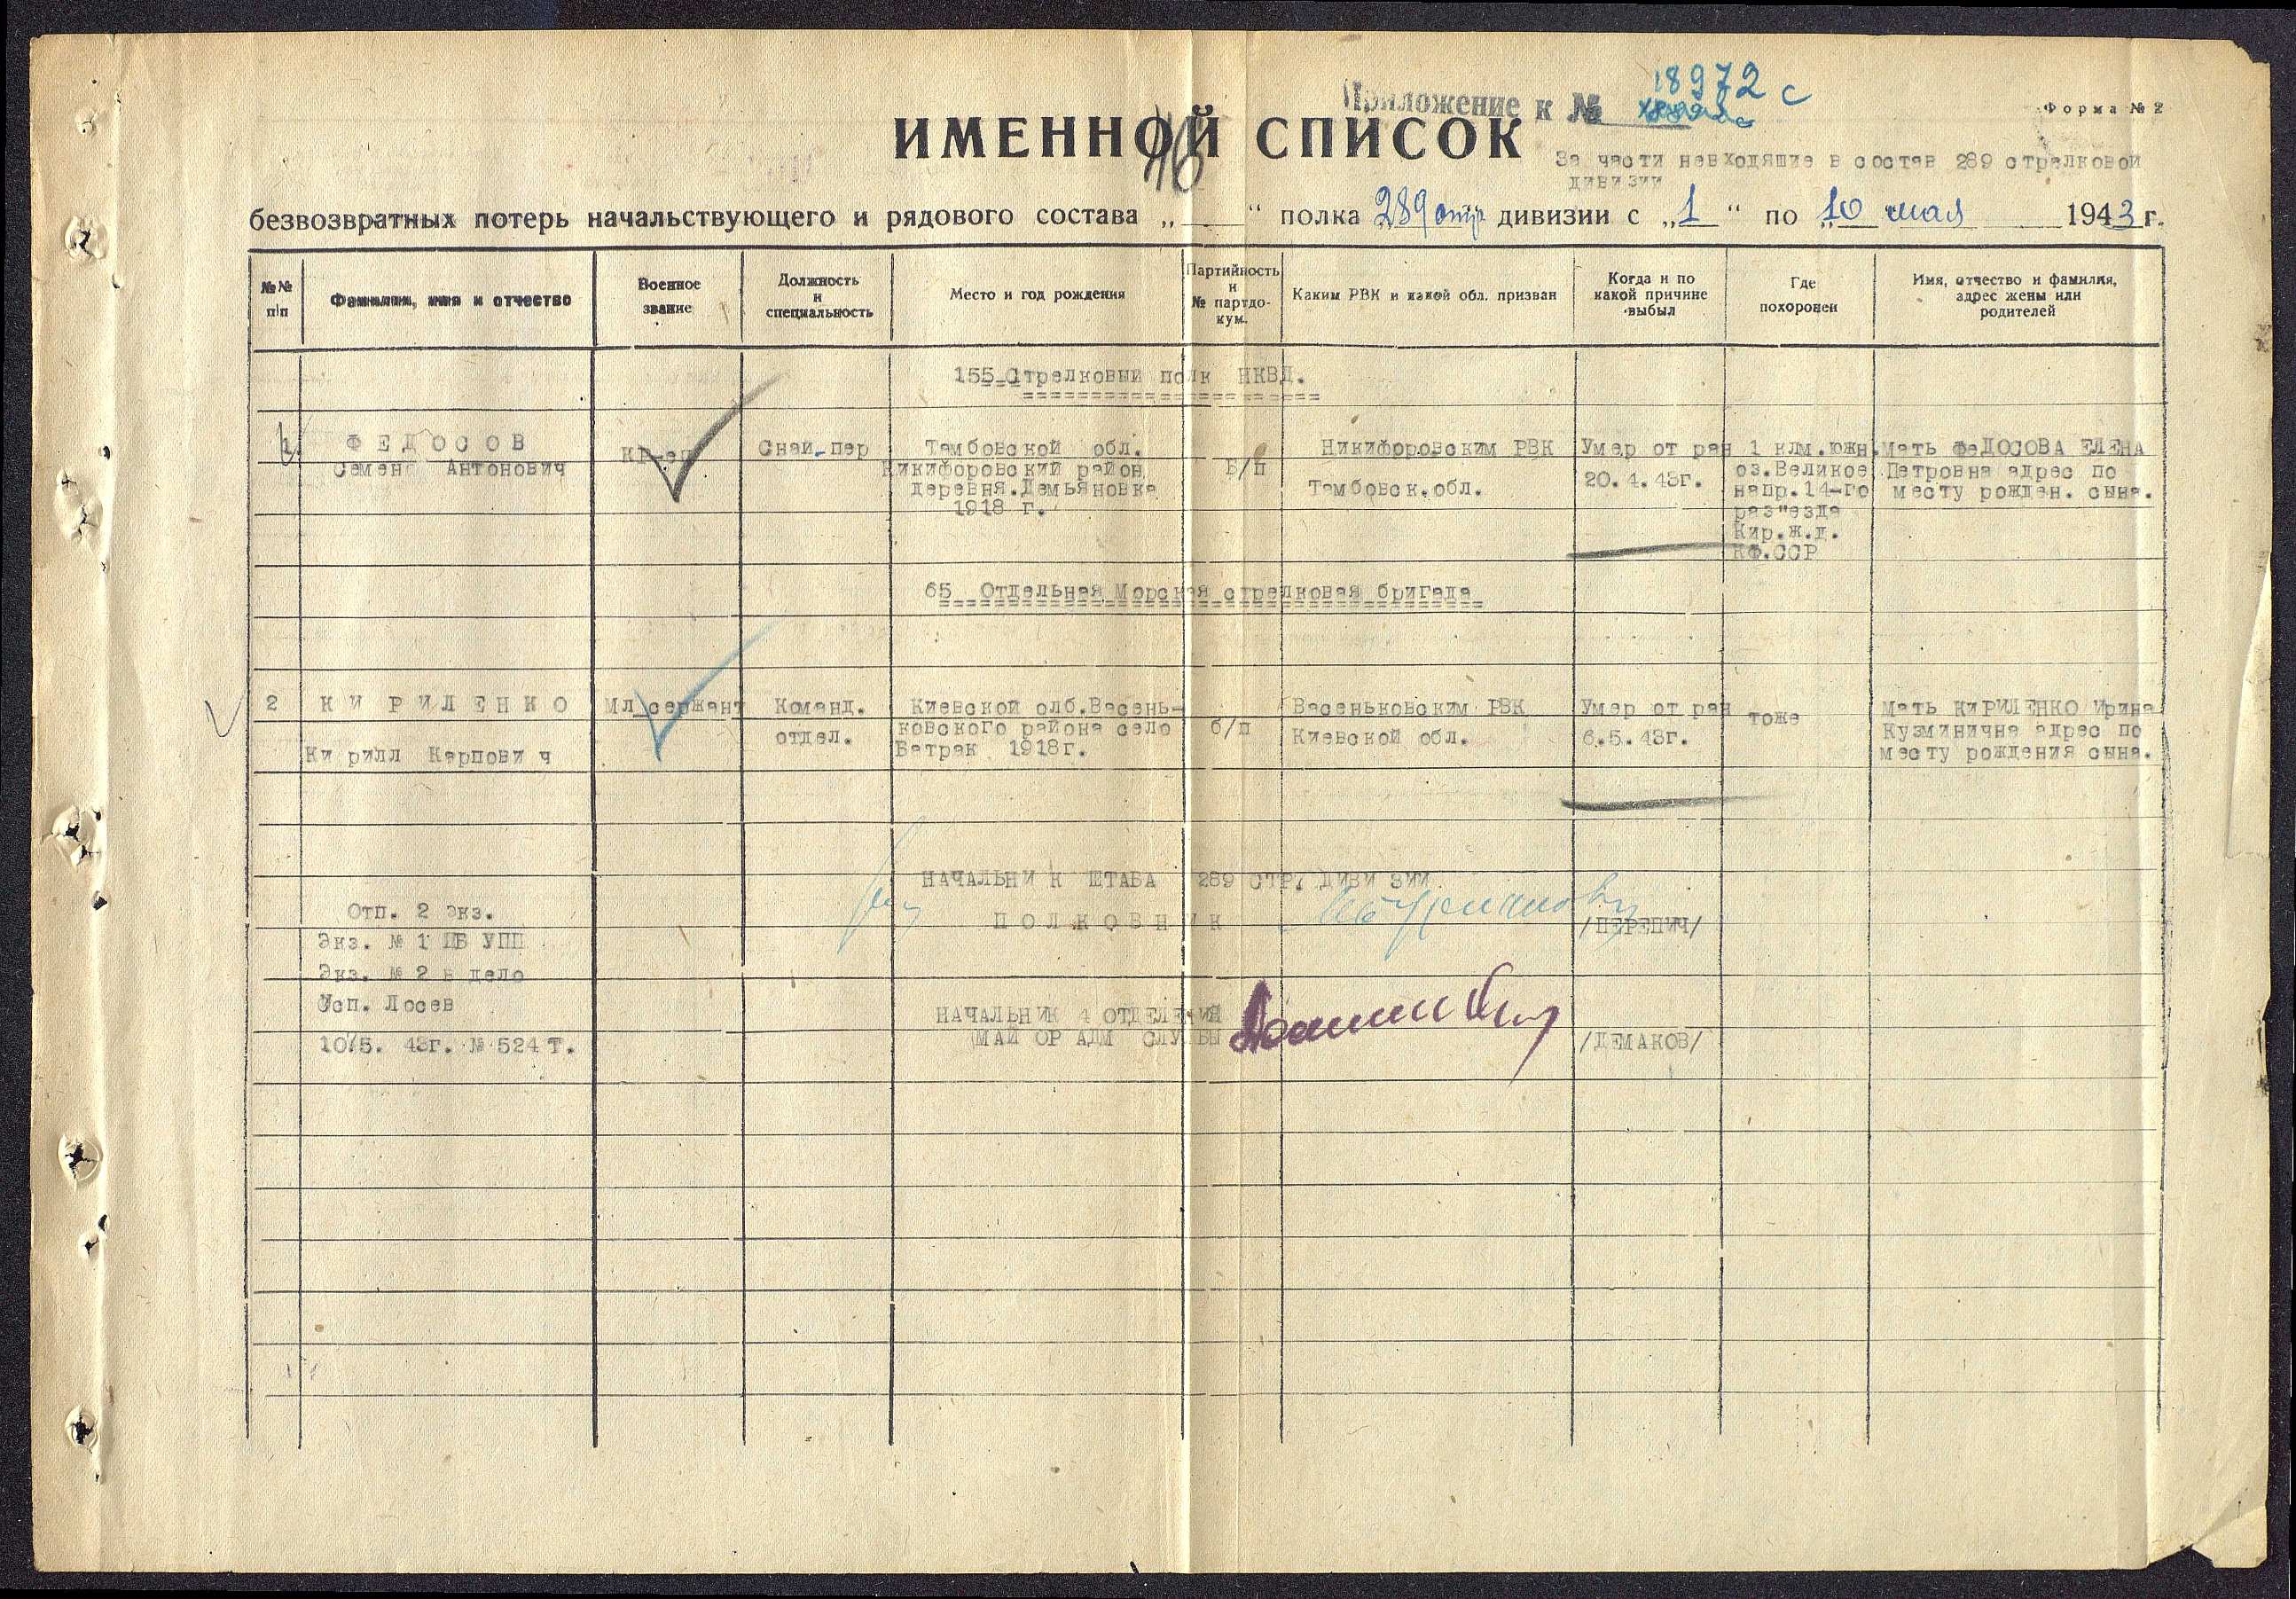 Приложение к № 18972 с
Форма № 2
ИМЕННОЙ СПИСОК
За части невходящие в состав 289 стрелковой
дивизии
безвозвратных потерь начальствующего и рядового состава „ “ полка 289 стр дивизии с „1“ по „10 мая 1943 г.
№№ п/п
Фамилия, имя и отчество
Военное звание
Должность и специальность
Место и год рождения
Партийность и № партдокум.
Каким РВК и какой обл. призван
Когда и по какой причине выбыл
Где похоронен
Имя, отчество и фамилия, адрес жены или родителей
155 Стрелковый полк НКВД.
1
ФЕДОСОВ
Семен Антонович
Кр-ец
Снай-пер
Тамбовской обл.
Никифоровский район
деревня.Демьяновка
1918 г.
Б/п
Никифоровским РВК
Тамбовск.обл.
Умер от ран
20.4.43г.
1 клм.южн.
оз.Великое
напр.14-го
раз"езда
Кир.ж.д.
КФ.ССР
Мать ФеДОСОВА ЕЛЕНА
Петровна адрес по
месту рожден. сына.
65 Отдельная Морская стрелковая бригада
2
КИРИЛЕНКО
Кирилл Карпович
Мл.сержант
Команд.
отдел.
Киевской олб.Васень-
ковского района село
Ватрак 1918г.
б/п
Васеньковским РВК
Киевской обл.
Умер от ран
6.5.43г.
тоже
Мать КИРИЛЕНКО Ирина
Кузминична адрес по
месту рождения сына.
НАЧАЛЬНИК ШТАБА 289 СТР. ДИВИЗИИ
ПОЛКОВНИК
/ПЕРЕПИЧ/
Отп. 2 экз.
Экз. № 1 ЦБ УПП
Экз. № 2 в дело
Исп. Лосев
10/5. 43г. № 524 Т.
НАЧАЛЬНИК 4 ОТДЕЛЕНИЯ
МАЙОР АДМ СЛУЖБЫ
/ДЕМАКОВ/